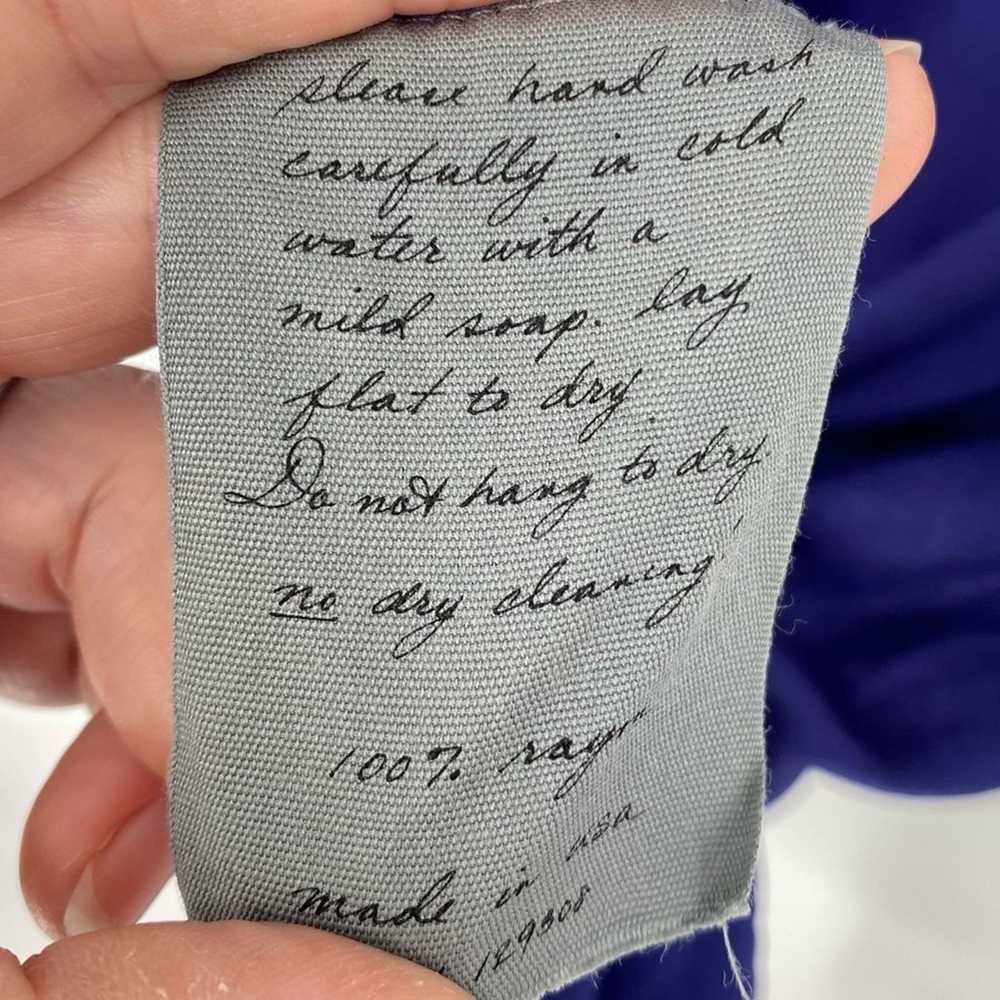 please hand wash
carefully in cold
water with a
mild soap. lay
flat to dry.
Do not hang to dry
no dry cleaning!
100% rayon
made in usa